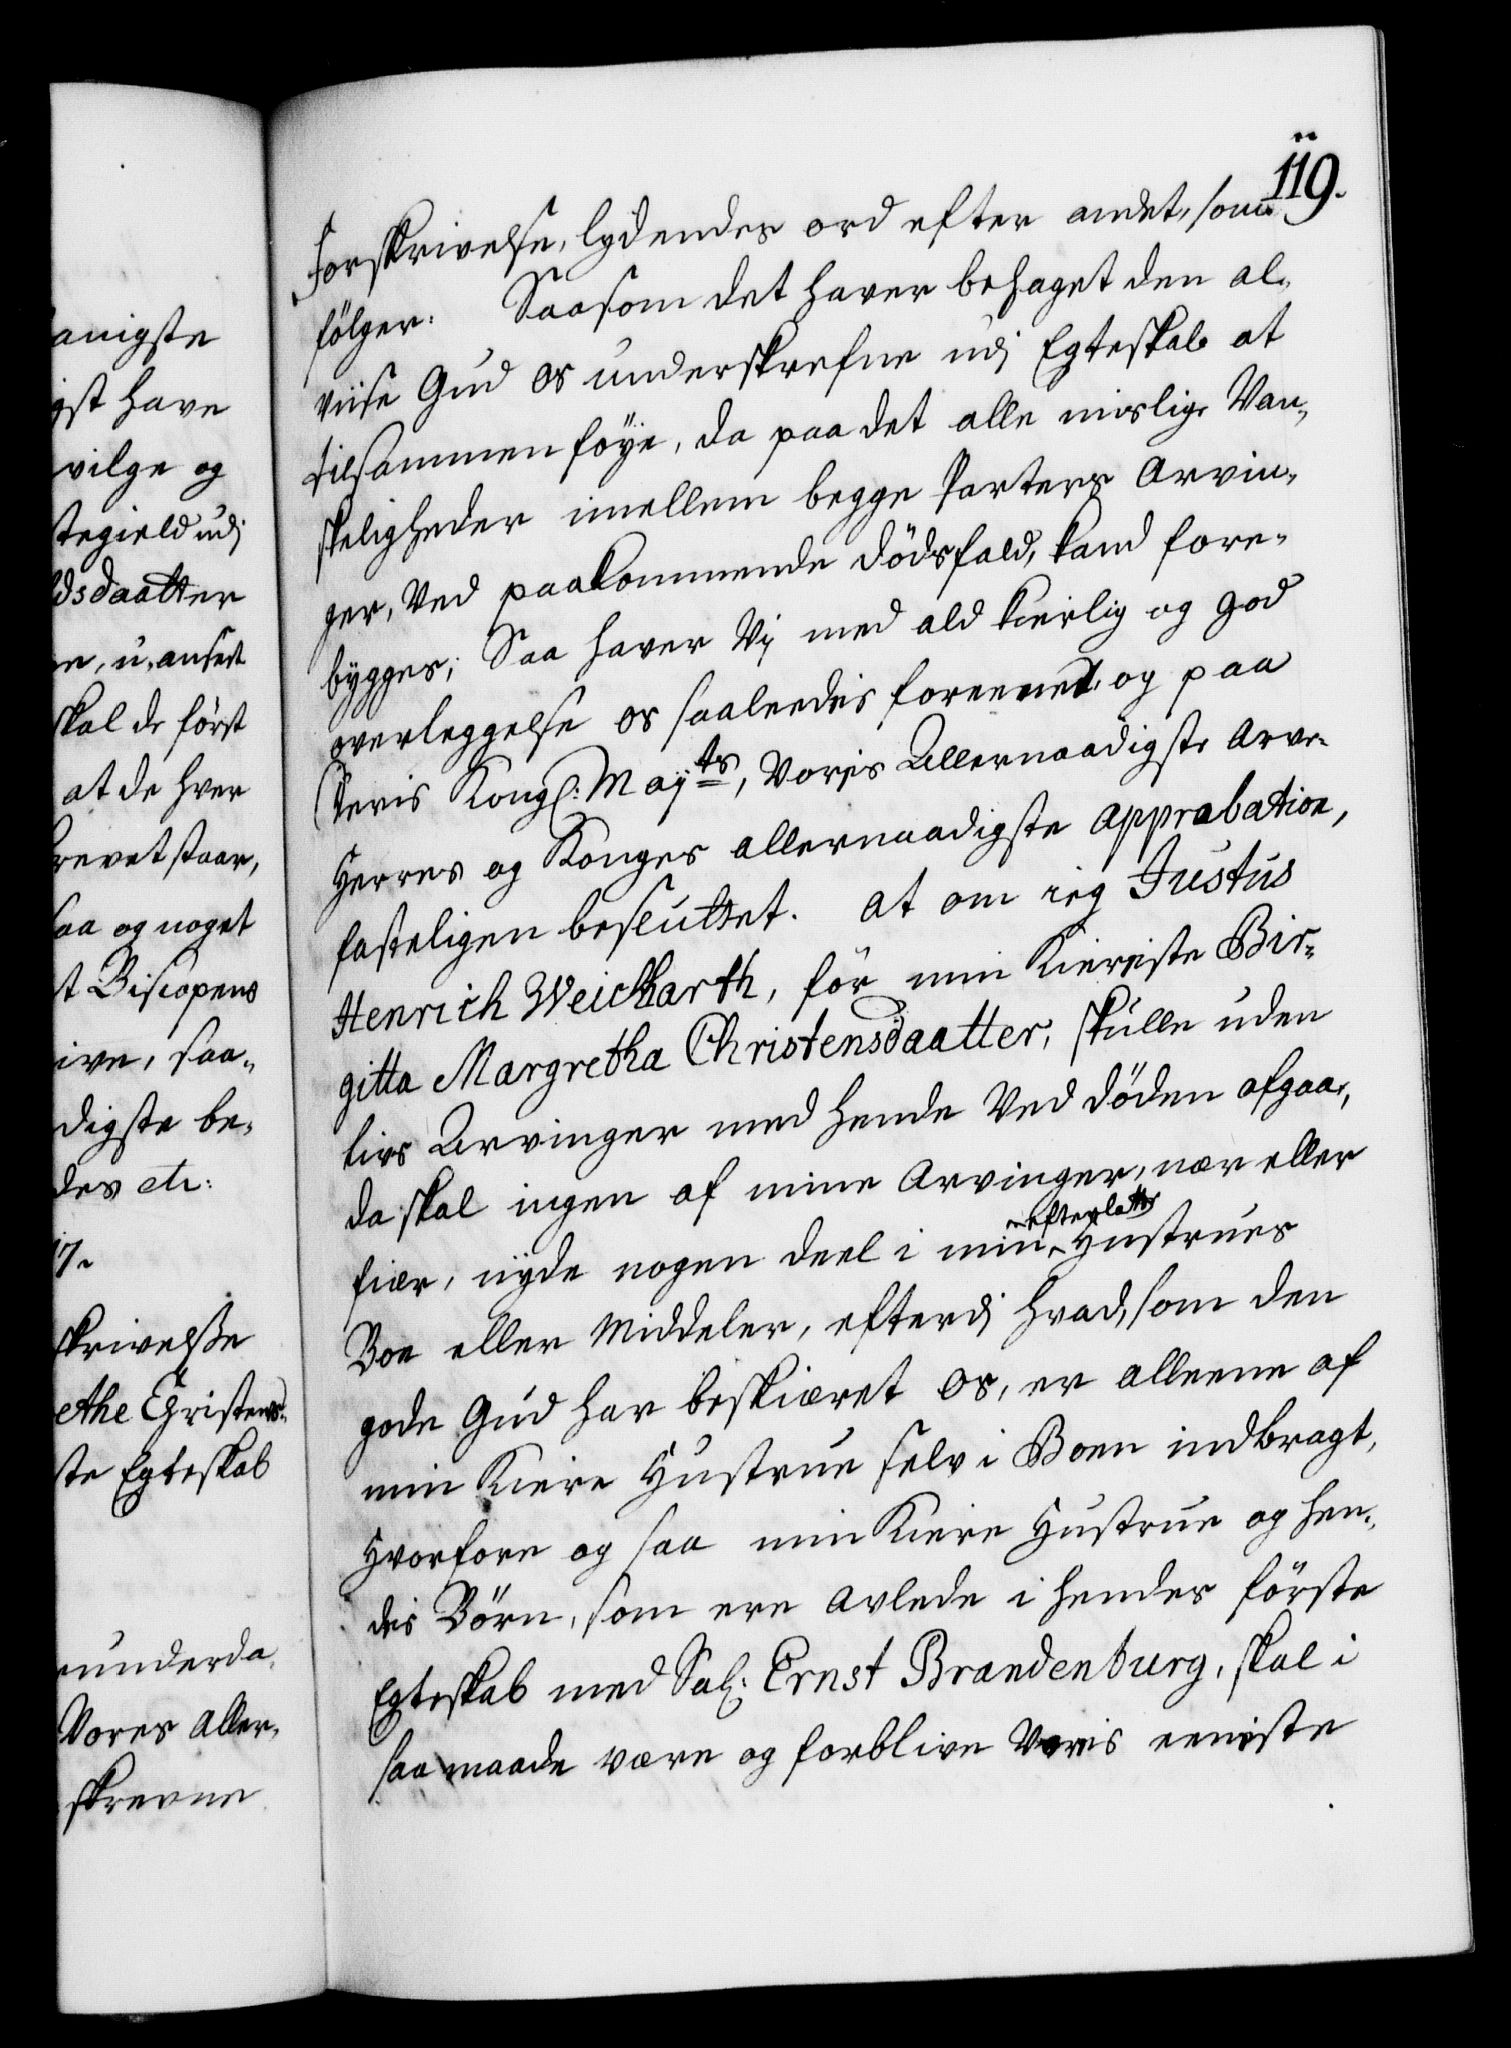 119.
Forskrivelse, lydendes ord efter andet, som
fölger. Saasom det haver behaget den al-
viise Gud os underskrefne udj Egteskab at
tilsammenföye, da paa det alle mislige Van-
skeligheder imellem begge Parters Arvin-
ger, Ved paakommende dödsfald, kand fore-
bygges; Saa haver Vj med ald kierlig og god
overleggelse os saaleedis foreenet, og paa
Deris Kongl: Mayts, Voris Allernaadigste Arve-
Herres og Konges allernaadigste approbation,
fasteligen besluttet. at om ieg Justus
Henrich Weichharth, för min Kiereste Bir-
gitta Margretha Christensdaatter, skulle uden
livs Arvinger med hende Ved döden afgaa,
da skal ingen af mine Arvinger, nær eller
efterlatte
fier, nyde nogen deel i min Hustrues
Boe eller Middeler, efterdj hvad, som den
gode Gud har beskiæret os, er alleene af
min Kiere Hustrue selv i Boen indbragt,
Hvorfore og saa min Kiere Hustrue og hen-
des Börn, som ere avlede i hendes förste
Egteskab med Sal: Ernst Brandenburg, skal i
saa maade være og forblive Voris eeniste
anigste
gst have
vilge og
stegield udj
ldsdaatter
en, u-anseet
skal de först
at de hver
brevet staar,
saa og noget
st Biscopens
ive, saa-
digste be-
des etc:
17.
skrivelsse
ethe Christens-
ste Egteskab
underda-
Vores Aller-
skrevne